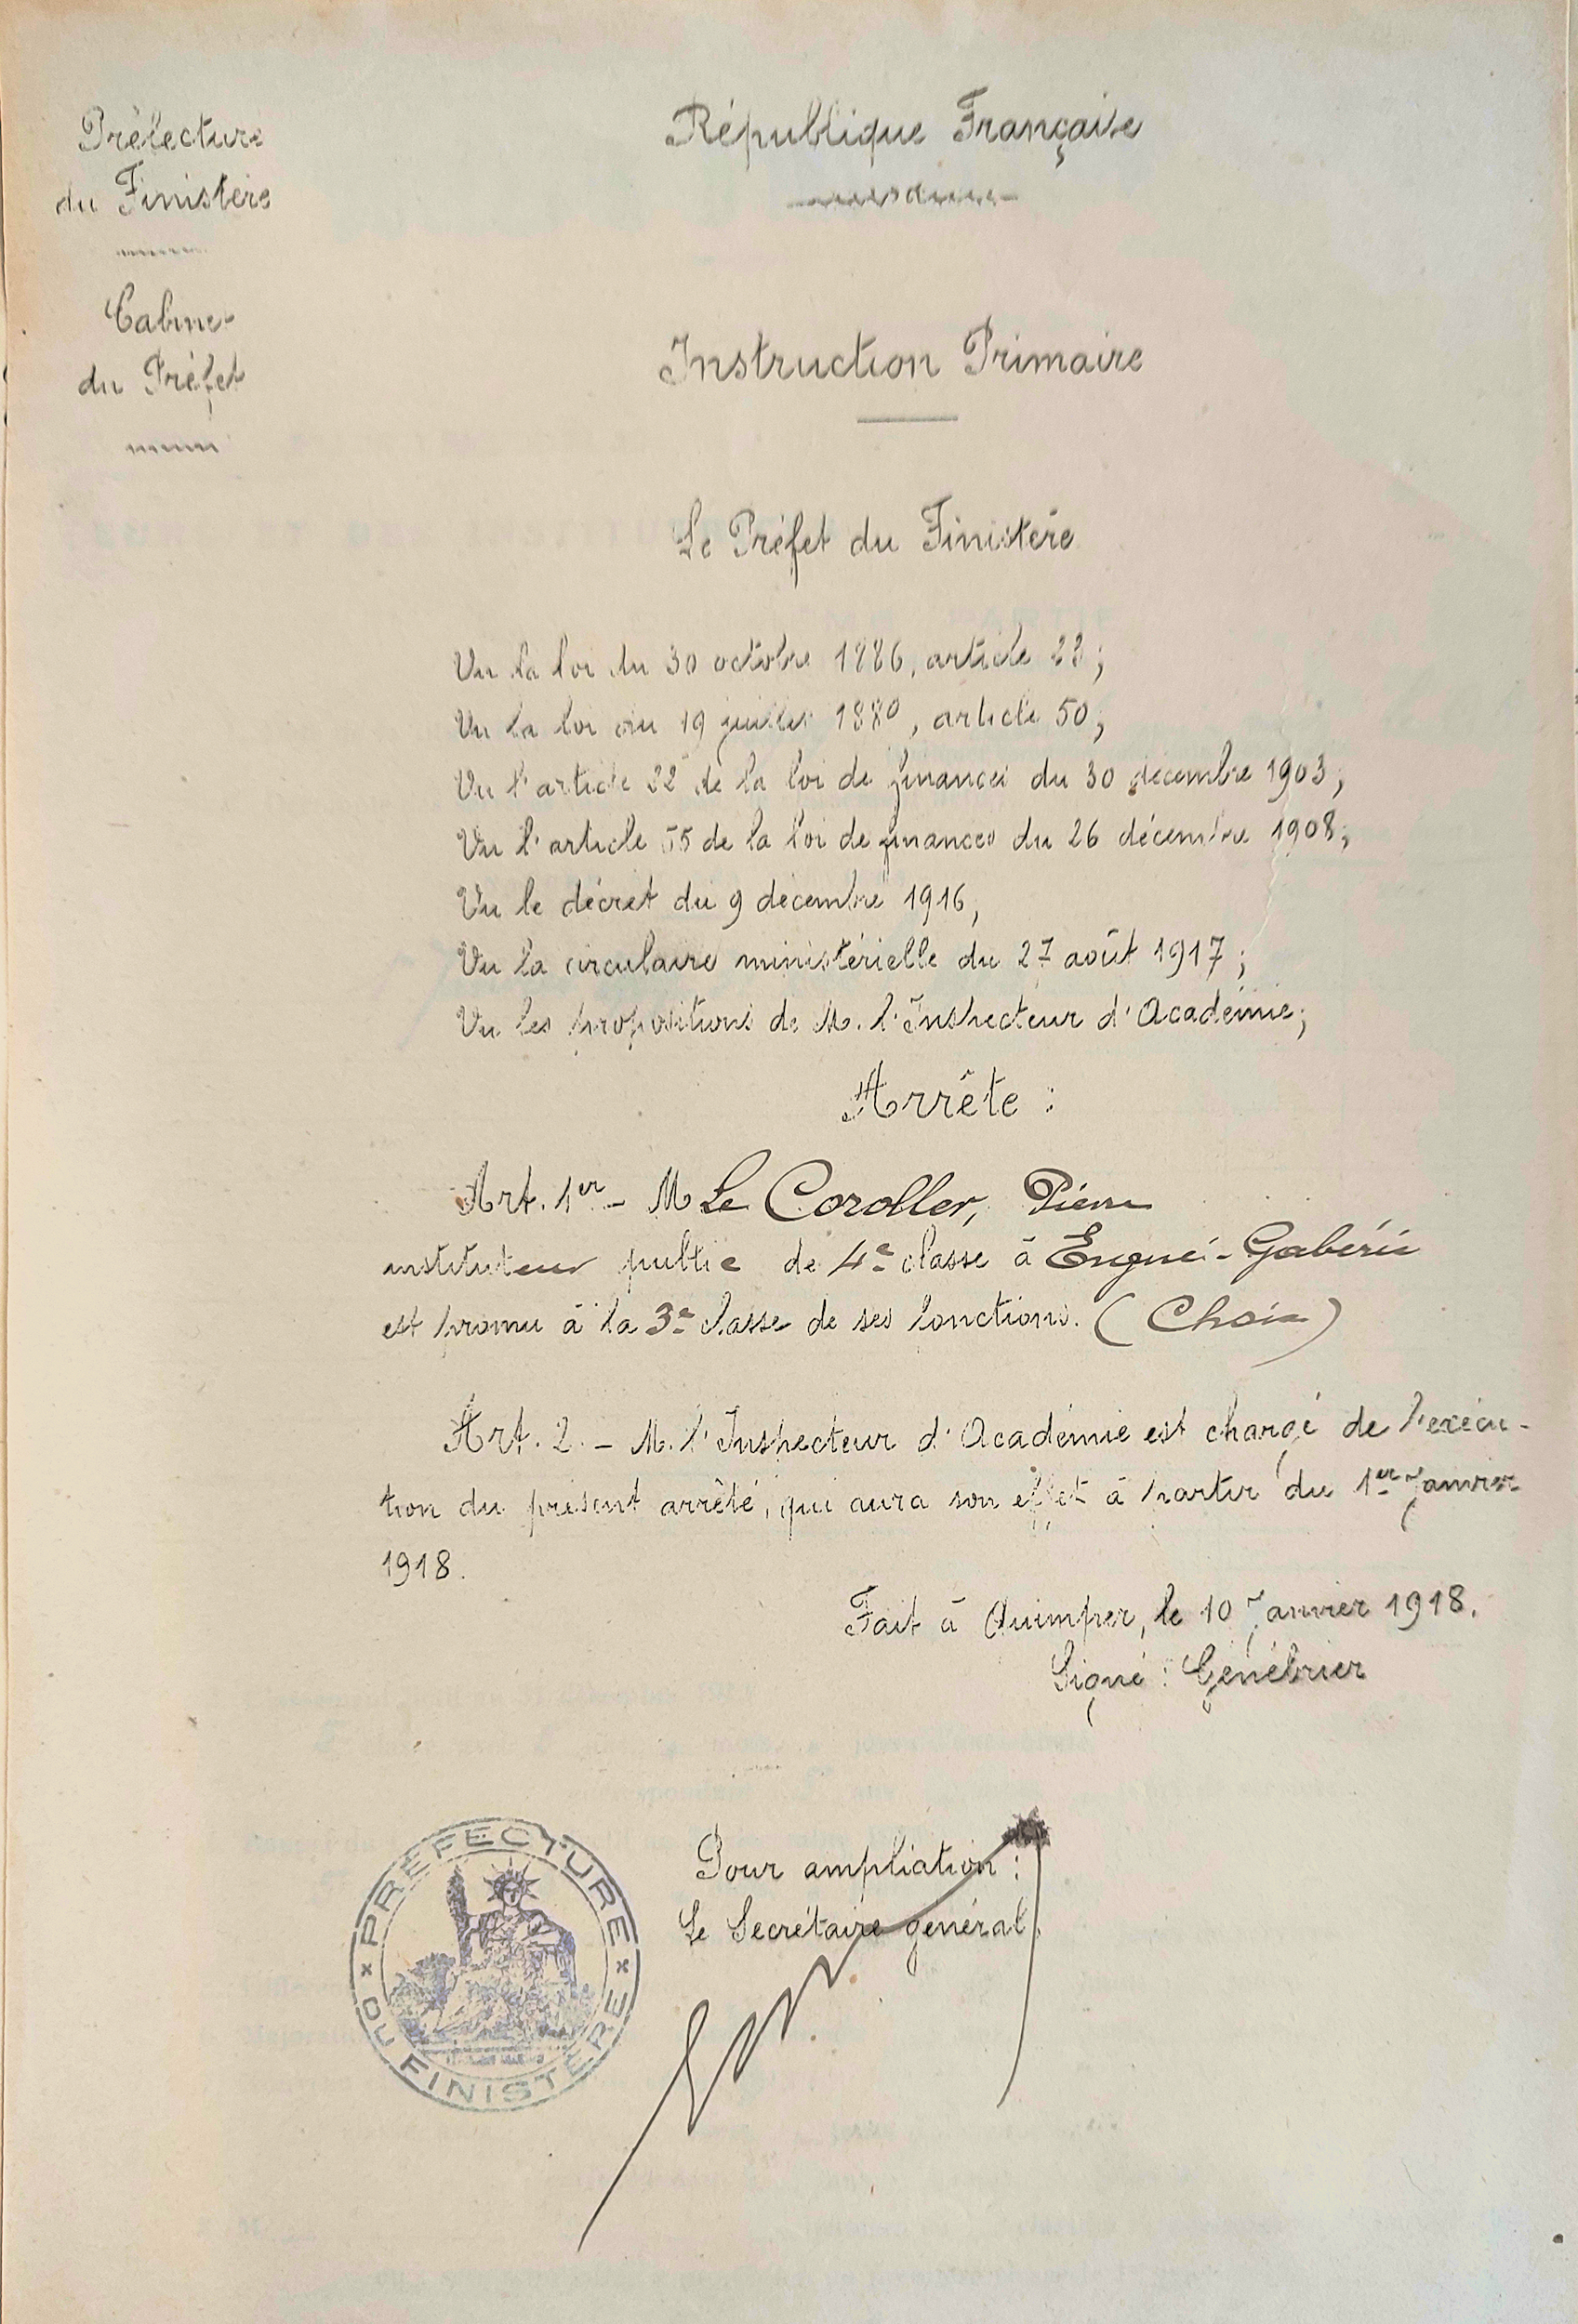 Préfecture
du Finistère
Cabinet
du Préfet
République Française
Instruction Primaire
Le Préfet du Finistère
Vu la loi du 30 octobre 1886, article 22;
Vu la loi du 19 juillet 1889, article 50;
Vu l'article 22 de la loi de finances du 30 décembre 1903;
Vu l'article 55 de la loi de finances du 26 décembre 1908;
Vu le décret du 9 décembre 1916,
Vu la circulaire ministérielle du 27 août 1917;
Vu les propositions de M. l'Inspecteur d'Académie;
Arrête :
Art. 1er - M Le Coroller, Pierre
instituteur public de 4e classe à Ergué-Gabéric
est promu à la 3e classe de ses fonctions. (Choix)
Art. 2. - M. l'Inspecteur d'Académie est chargé de l'exécu-
tion du présent arrêté, qui aura son effet à partir du 1er Janvier
1918.
Fait à Quimper, le 10 Janvier 1918.
Signé : Génébrier
Pour ampliation :
Le Secrétaire général,
PREFECTURE DU FINISTERE